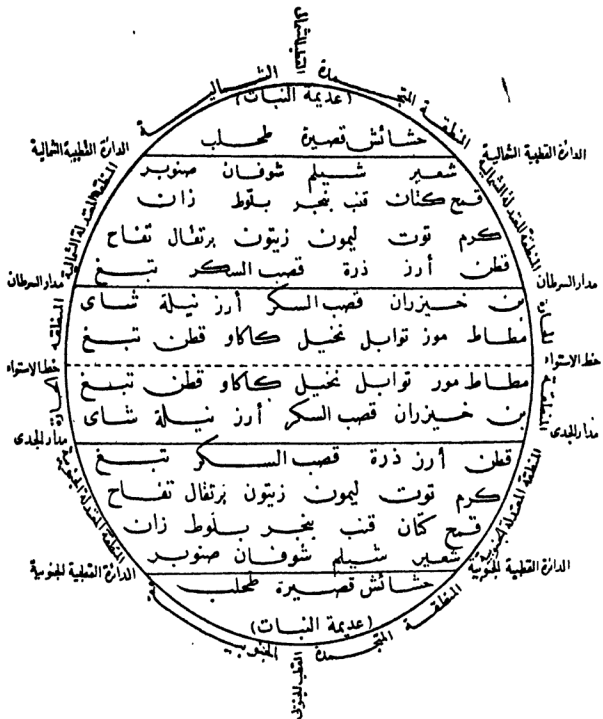 القطب الشمالي
المنطقة المتجمدة الشمالية
(عديمة النبات)
حشائش قصيرة طحلب
الدائرة القطبية الشمالية
الدائرة القطبية الشمالية
شعير شيلم شوفان صنوبر
المنطقة المعتدلة الشمالية
المنطقة المعتدلة الشمالية
قمح كتان قنب بنجر بلوط زان
كرم توت ليمون زيتون برتقال تفاح
قطن أرز ذرة قصب السكر تبغ
مدار السرطان
مدار السرطان
بن خيزران قصب السكر أرز نيلة شاى
المنطقة الحارة
المنطقة الحارة
مطاط موز توابل نخيل كاكاو قطن تبغ
خط الاستواء
خط الاستواء
مطاط موز توابل نخيل كاكاو قطن تبغ
بن خيزران قصب السكر أرز نيلة شاى
مدار الجدى
مدار الجدى
قطن أرز ذرة قصب السكر تبغ
كرم توت ليمون زيتون برتقال تفاح
المنطقة المعتدلة الجنوبية
المنطقة المعتدلة الجنوبية
قمح كتان قنب بنجر بلوط زان
شعير شيلم شوفان صنوبر
الدائرة القطبية الجنوبية
الدائرة القطبية الجنوبية
حشائش قصيرة طحلب
(عديمة النبات)
المنطقة المتجمدة الجنوبية
القطب الجنوبى